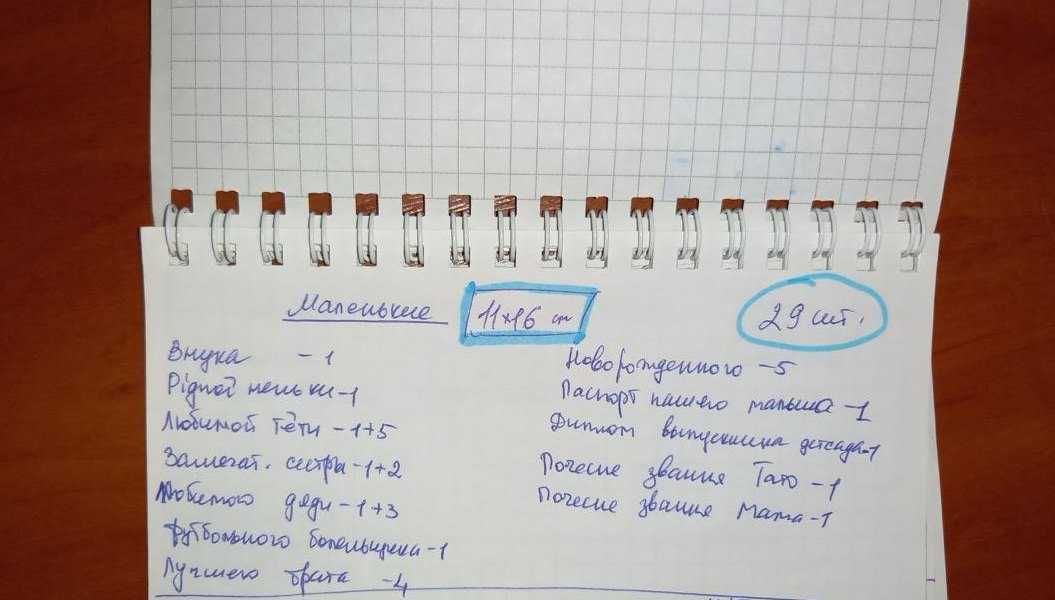 Маленькие 11×16 см 29 шт.
Внука - 1
Рідної неньки - 1
Любимой тёти - 1+5
Замечат. сестры - 1+2
Любимого дяди - 1+3
Футбольного болельщика - 1
Лучшего брата - 4
Новорожденного - 5
Паспорт нашего малыша - 1
Диплом выпускника детсада - 1
Почесне звання Тато - 1
Почесне звання Мама - 1